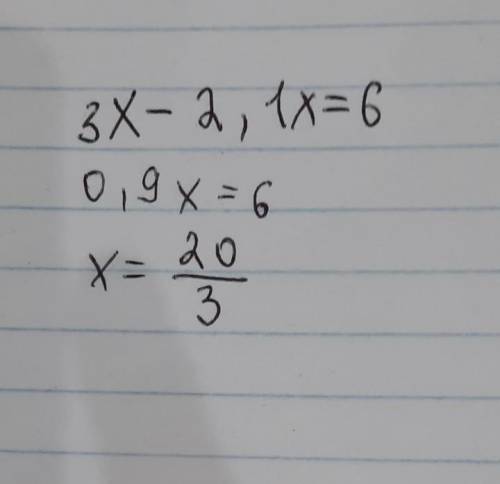 3x - 2,1x = 6
0,9x = 6
x = 20/3